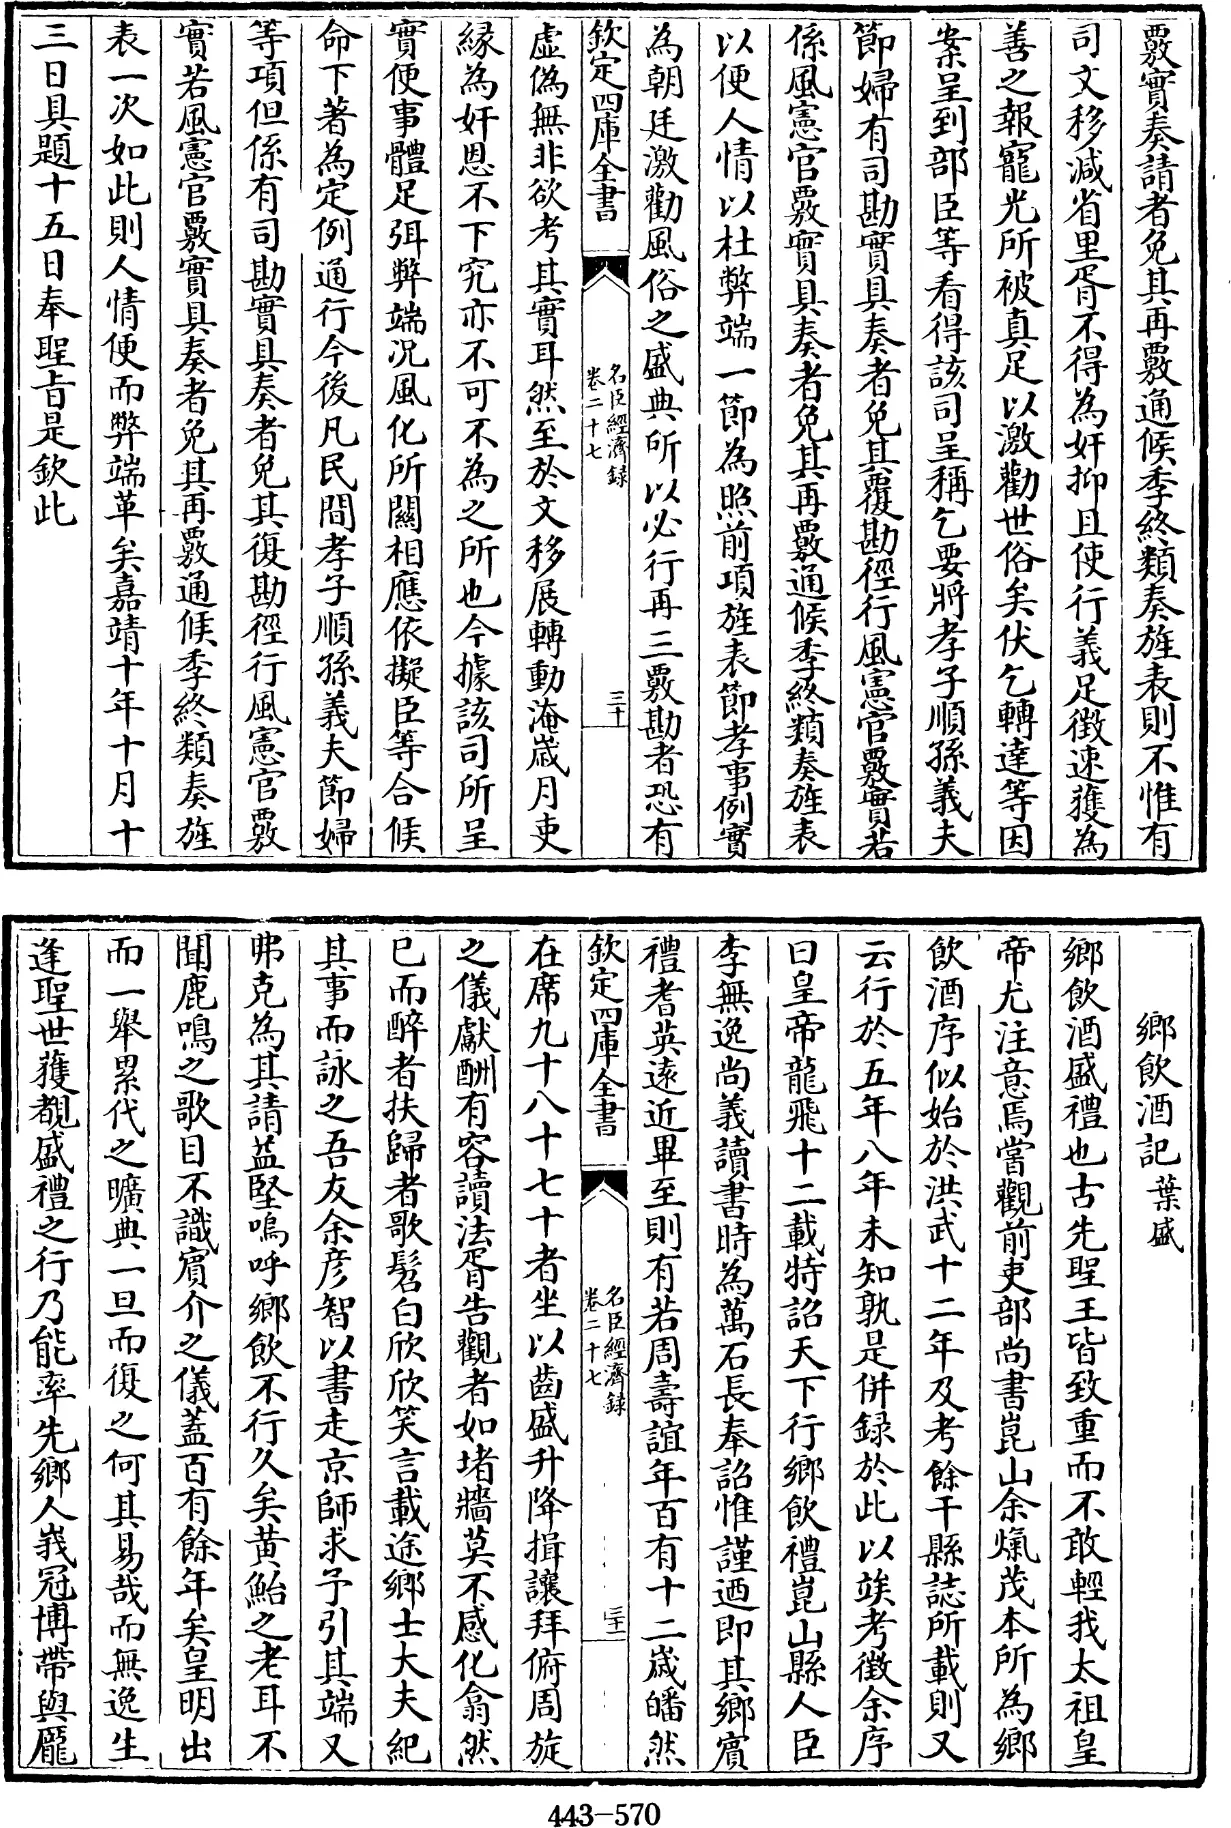 覈實奏請者免其再覈通候季終類奏旌表則不惟有
司文移減省里胥不得為奸抑且使行義足徴速獲為
善之報寵光所被真足以激勸世俗矣伏乞轉達等因
案呈到部臣等看得該司呈稱乞要將孝子順孫義夫
節婦有司勘實具奏者免其覆勘徑行風憲官覈實若
係風憲官覈實具奏者免其再覈通候季終類奏旌表
以便人情以杜弊端一節為照前項旌表節孝事例實
為朝廷激勸風俗之盛典所以必行再三覈勘者恐有
欽定四庫全書
名臣經濟録
卷二十七
三十
虛偽無非欲考其實耳然至於文移展轉動淹歲月吏
緣為奸恩不下究亦不可不為之所也今據該司所呈
實便事體足弭弊端況風化所關相應依擬臣等合候
命下著為定例通行今後凡民間孝子順孫義夫節婦
等項但係有司勘實具奏者免其復勘徑行風憲官覈
實若風憲官覈實具奏者免其再覈通候季終類奏旌
表一次如此則人情便而弊端革矣嘉靖十年十月十
三日具題十五日奉聖旨是欽此
鄉飲酒記 葉盛
鄉飲酒盛禮也古先聖王皆致重而不敢輕我太祖皇
帝尤注意焉嘗觀前吏部尚書崑山余熂茂本所為鄉
飲酒序似始於洪武十二年及考餘干縣誌所載則又
云行於五年八年未知孰是併録於此以竢考徵余序
曰皇帝龍飛十二載特詔天下行鄉飲禮崑山縣人臣
李無逸尚義讀書時為萬石長奉詔惟謹迺即其鄉賓
禮耆英遠近畢至則有若周壽誼年百有十二歲皤然
欽定四庫全書
名臣經濟録
卷二十七
三十一
在席九十八十七十者坐以齒盛升降揖讓拜俯周旋
之儀獻酬有容讀法胥告觀者如堵牆莫不感化翕然
已而醉者扶歸者歌髫白欣欣笑言載途鄉士大夫紀
其事而詠之吾友余彦智以書走京師求予引其端又
弗克為其請益堅嗚呼鄉飲不行久矣黄鮐之老耳不
聞鹿鳴之歌目不識賓介之儀蓋百有餘年矣皇明出
而一舉累代之曠典一旦而復之何其易哉而無逸生
逢聖世獲覩盛禮之行乃能率先鄉人峩冠博帶與龎
443-570